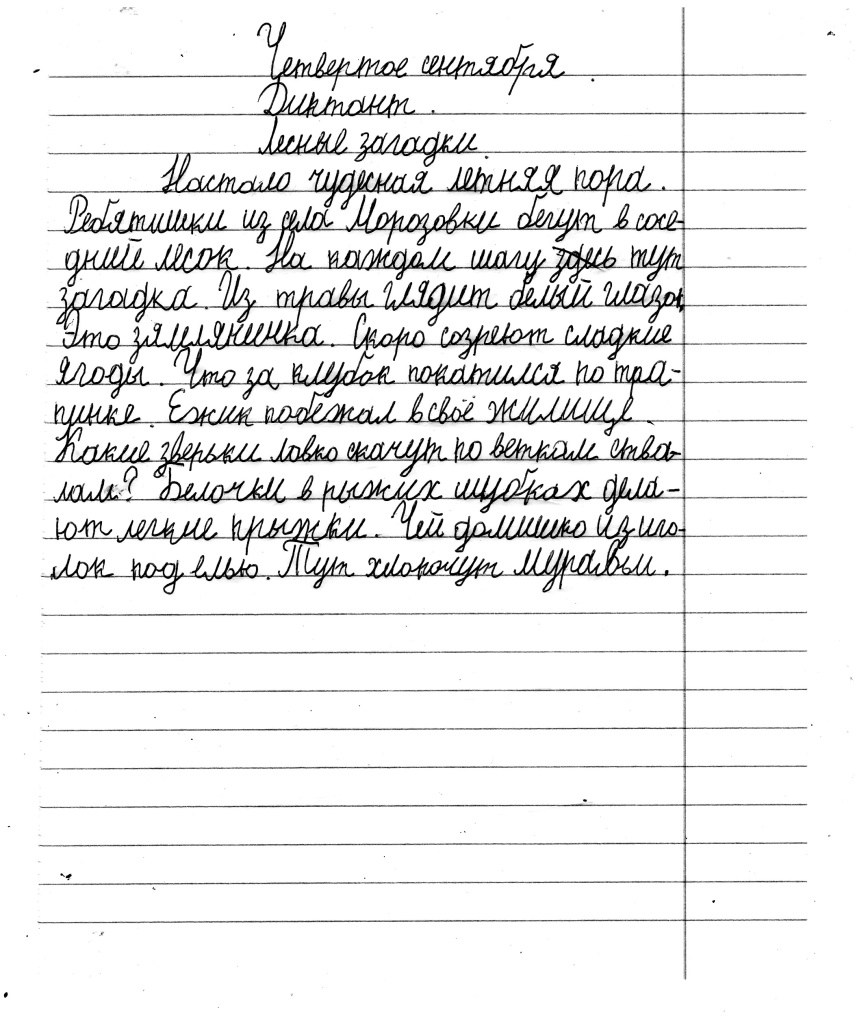 Четвертое сентября.
Диктант.
Лесные загадки.
Настало чудесная летняя пора.
Ребятишки из села Морозовки бегут в сосе-
дний лесок. На каждом шагу здесь тут
загадка. Из травы глядит белый глазок,
Это зямлянинка. Скоро созреют сладкие
ягоды. Что за клубок покатился по тра-
пинке. Ежик побежал в своё жилище.
Какие зверьки ловко скачут по веткам ство-
лам? Белочки в рыжих шубках дела-
ют легкие прыжки. Чей домишко из иго-
лок под елью. Тут хлопочут муравьи.